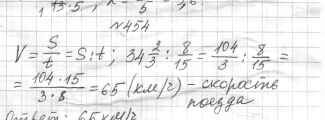 N454
V = S/t = S:t; 34 2/3 : 8/15 = 104/3 : 8/15 =
= 104·15/3·8 = 65 (км/ч) – скорость
поезда
Ответ: 65 км/ч